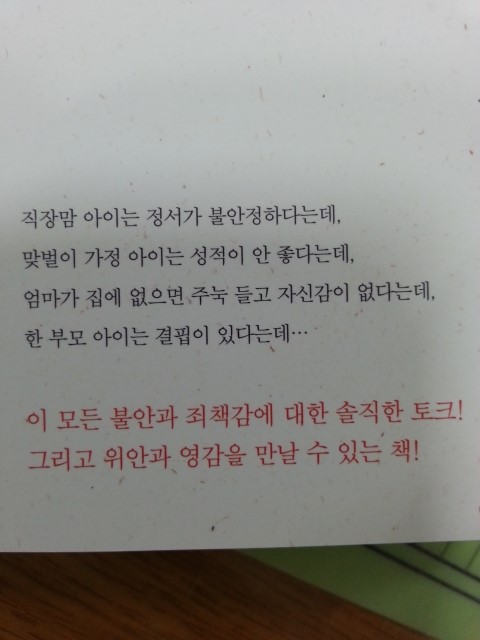 직장맘 아이는 정서가 불안정하다는데,
맞벌이 가정 아이는 성적이 안 좋다는데,
엄마가 집에 없으면 주눅 들고 자신감이 없다는데,
한 부모 아이는 결핍이 있다는데…
이 모든 불안과 죄책감에 대한 솔직한 토크!
그리고 위안과 영감을 만날 수 있는 책!